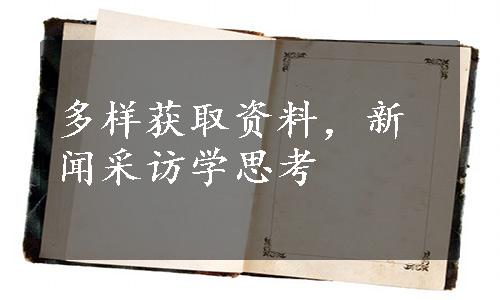 多样获取资料，新
闻采访学思考